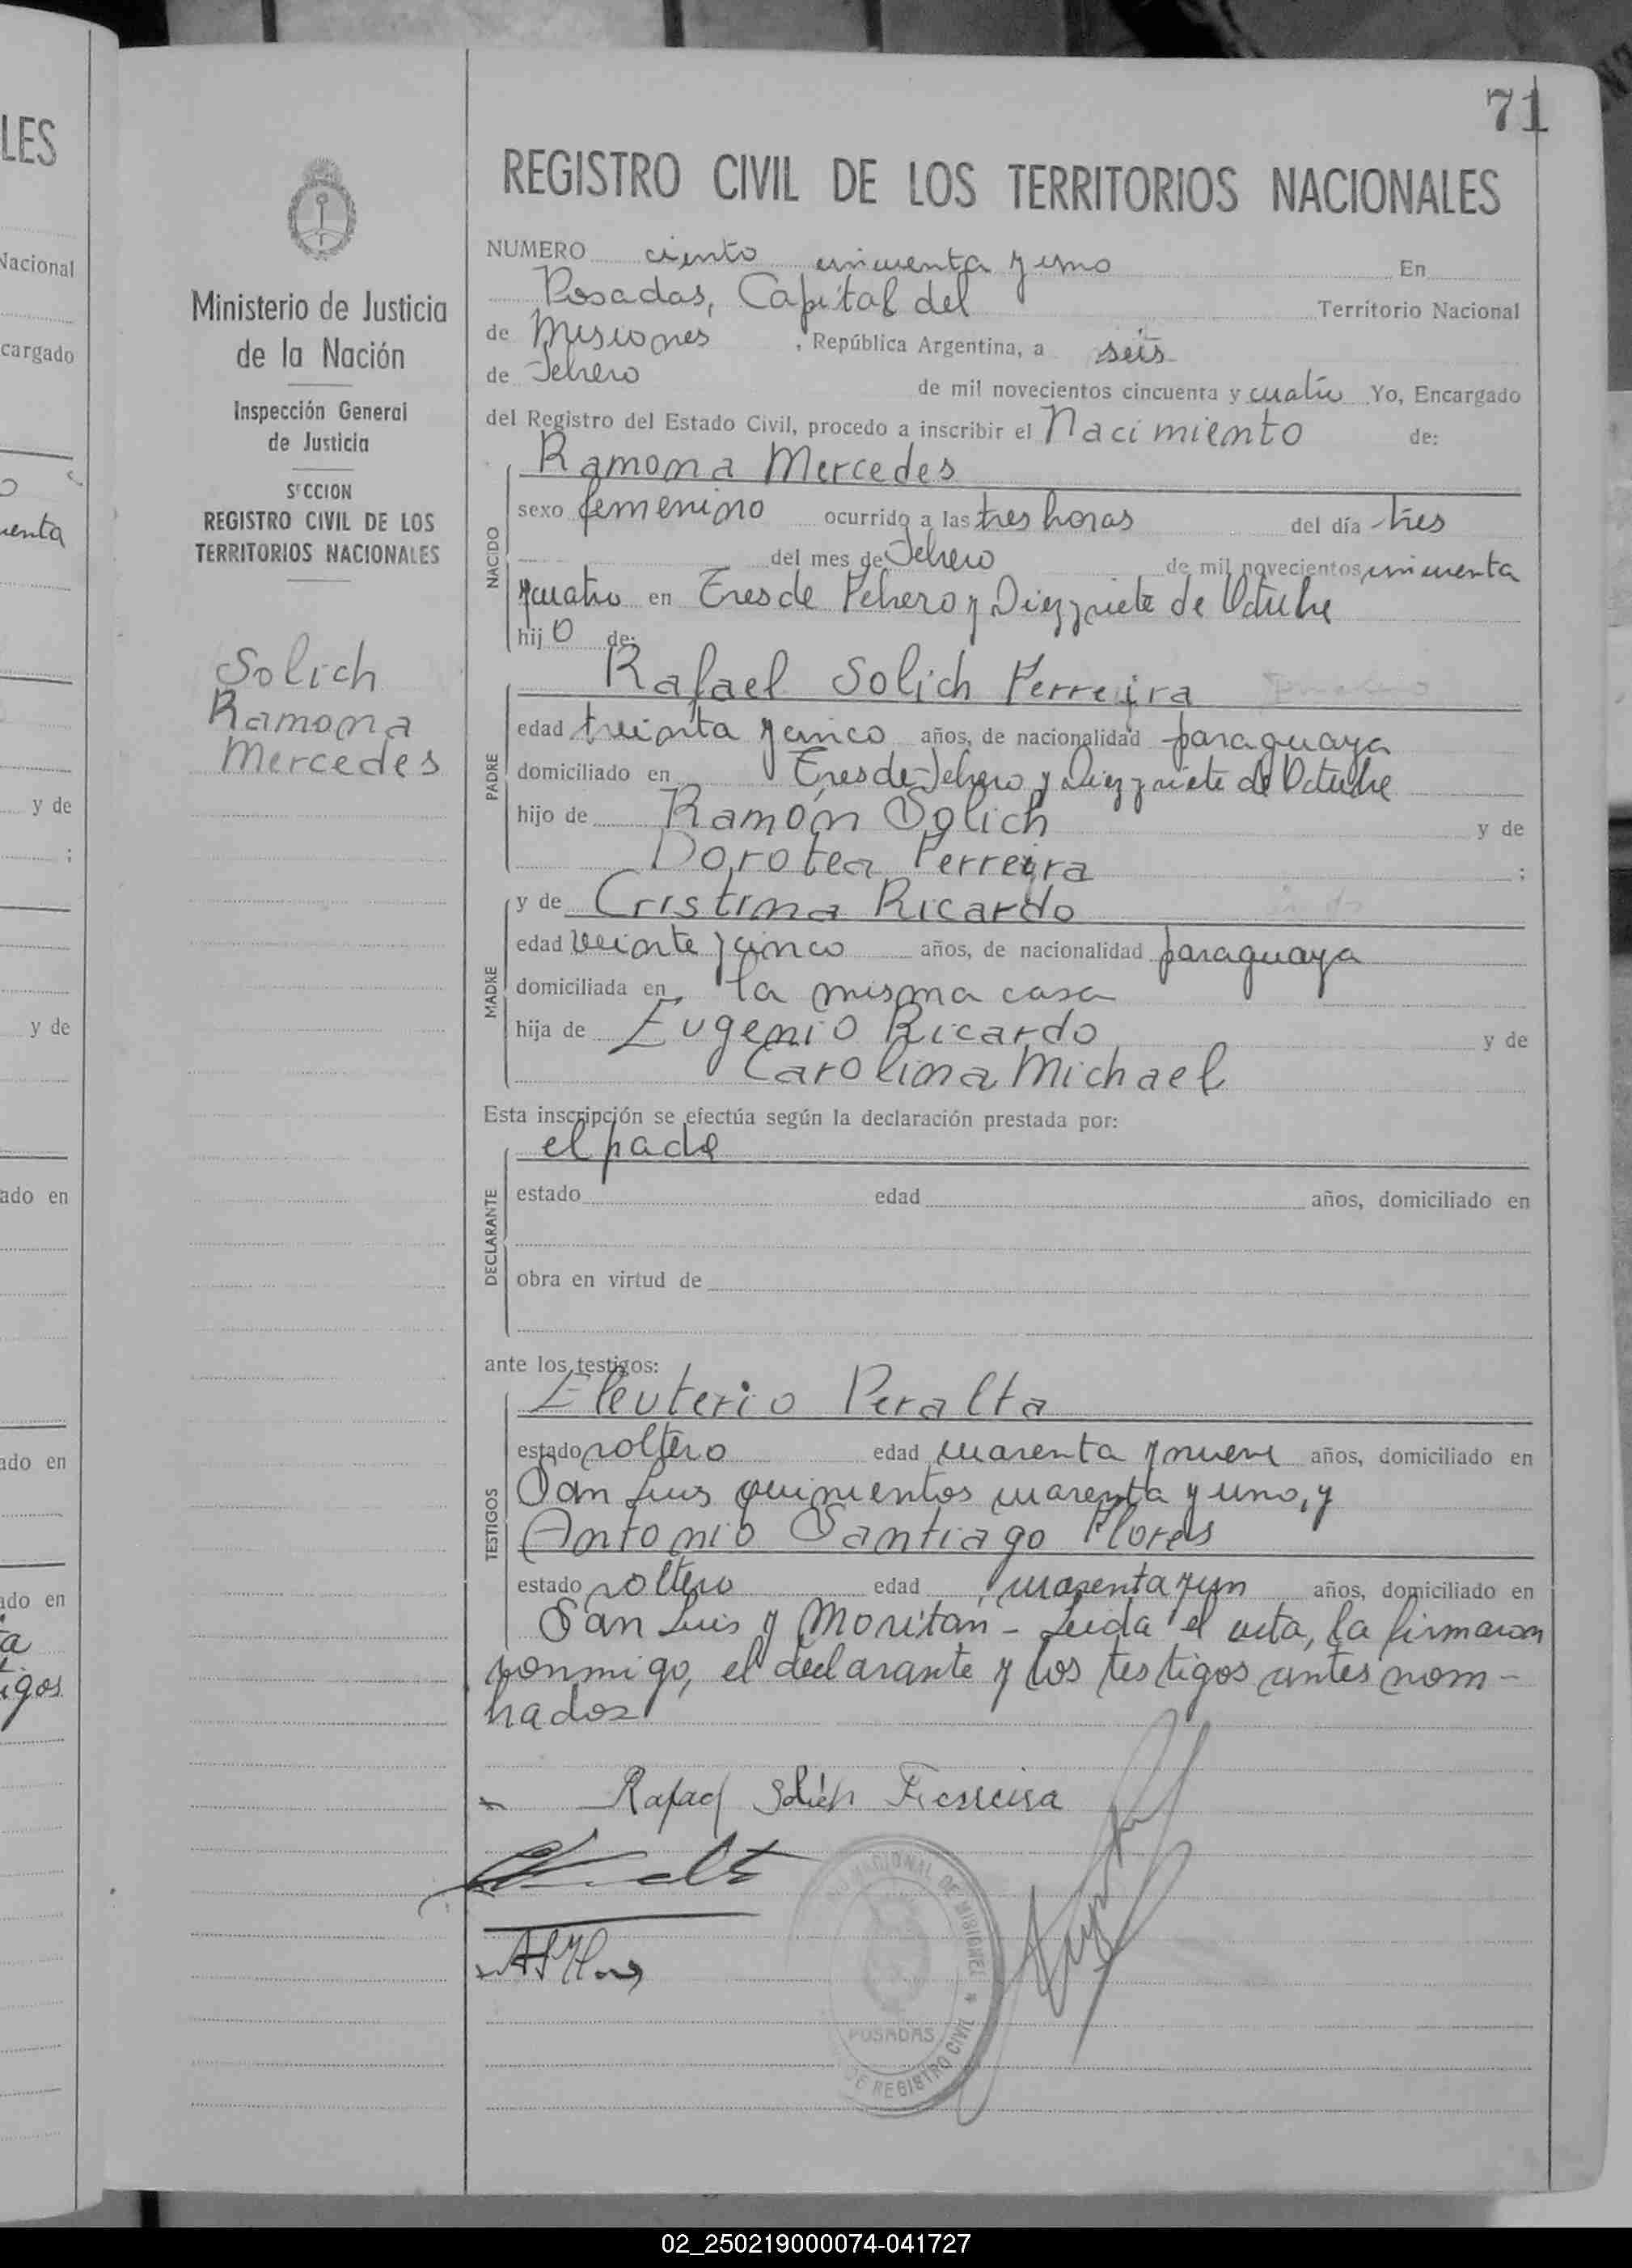 LES
Nacional
cargado
o
uenta
y de
;
y de
ado en
ado en
ado en
a
tigos
Ministerio de Justicia
de la Nación
Inspección General
de Justicia
SECCION
REGISTRO CIVIL DE LOS
TERRITORIOS NACIONALES
Solich
Ramona
Mercedes
71
REGISTRO CIVIL DE LOS TERRITORIOS NACIONALES
NUMERO ciento cincuenta y uno En
Posadas, Capital del Territorio Nacional
de Misiones , República Argentina, a seis
de Febrero de mil novecientos cincuenta y cuatro Yo, Encargado
del Registro del Estado Civil, procedo a inscribir el Nacimiento de:
Ramona Mercedes
NACIDO
sexo femenino ocurrido a las tres horas del día tres
del mes de Febrero de mil novecientos cincuenta
y cuatro en Tres de Febrero y Diez y siete de Octubre
hij o de:
Rafael Solich Ferreira
PADRE
edad treinta y cinco años, de nacionalidad paraguaya
domiciliado en Tres de Febrero y Diez y siete de Octubre
hijo de Ramón Solich y de
Dorotea Ferreira ;
y de Cristina Ricardo
MADRE
edad veinte y cinco años, de nacionalidad paraguaya
domiciliada en la misma casa
hija de Eugenio Ricardo y de
Carolina Michael
Esta inscripción se efectúa según la declaración prestada por:
el padre
DECLARANTE
estado edad años, domiciliado en
obra en virtud de
ante los testigos:
Eleuterio Peralta
TESTIGOS
estado soltero edad cuarenta y nueve años, domiciliado en
San Luis quinientos cuarenta y uno, y
Antonio Santiago Flores
estado soltero edad cuarenta y un años, domiciliado en
San Luis y Moritán - Leida el acta, la firmaron
conmigo, el declarante y los testigos antes nom-
brados
Rafael Solich Ferreira
NACIONAL DE MISIONES
POSADAS
DE REGISTRO CIVIL
02_250219000074-041727